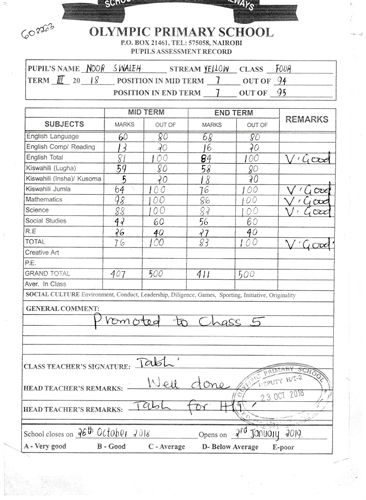 602253
OLYMPIC PRIMARY SCHOOL
P.O. BOX 21461, TEL: 575058, NAIROBI
PUPILS ASSESSMENT RECORD
PUPIL'S NAME NOOR SWALEH STREAM YELLOW CLASS FOUR
TERM III 20 18 POSITION IN MID TERM 7 OUT OF 94
POSITION IN END TERM 7 OUT OF 95
MID TERM END TERM REMARKS
SUBJECTS MARKS OUT OF MARKS OUT OF
English Language 60 80 68 80
English Comp/ Reading 13 20 16 20
English Total 81 100 84 100 V. Good
Kiswahili (Lugha) 59 80 58 80
Kiswahili (Insha)/ Kusoma 5 20 18 20
Kiswahili Jumla 64 100 76 100 V. Good
Mathematics 98 100 86 100 V. Good
Science 88 100 82 100 V. Good
Social Studies 42 60 56 60
R.E 26 40 27 40
TOTAL 76 100 83 100 V. Good
Creative Art
P.E.
GRAND TOTAL 407 500 411 500
Aver. In Class
SOCIAL CULTURE Environment, Conduct, Leadership, Diligence, Games, Sporting, Initiative, Originality
GENERAL COMMENT:
Promoted to Class 5
CLASS TEACHER'S SIGNATURE: Tabh
HEAD TEACHER'S REMARKS: Well done
PRIMARY SCHOOL
DEPUTY H/T-2
23 OCT 2018
HEAD TEACHER'S REMARKS: Tabh for H/T
School closes on 26th October 2018 Opens on 2nd January 2019
A - Very good B - Good C - Average D- Below Average E-poor